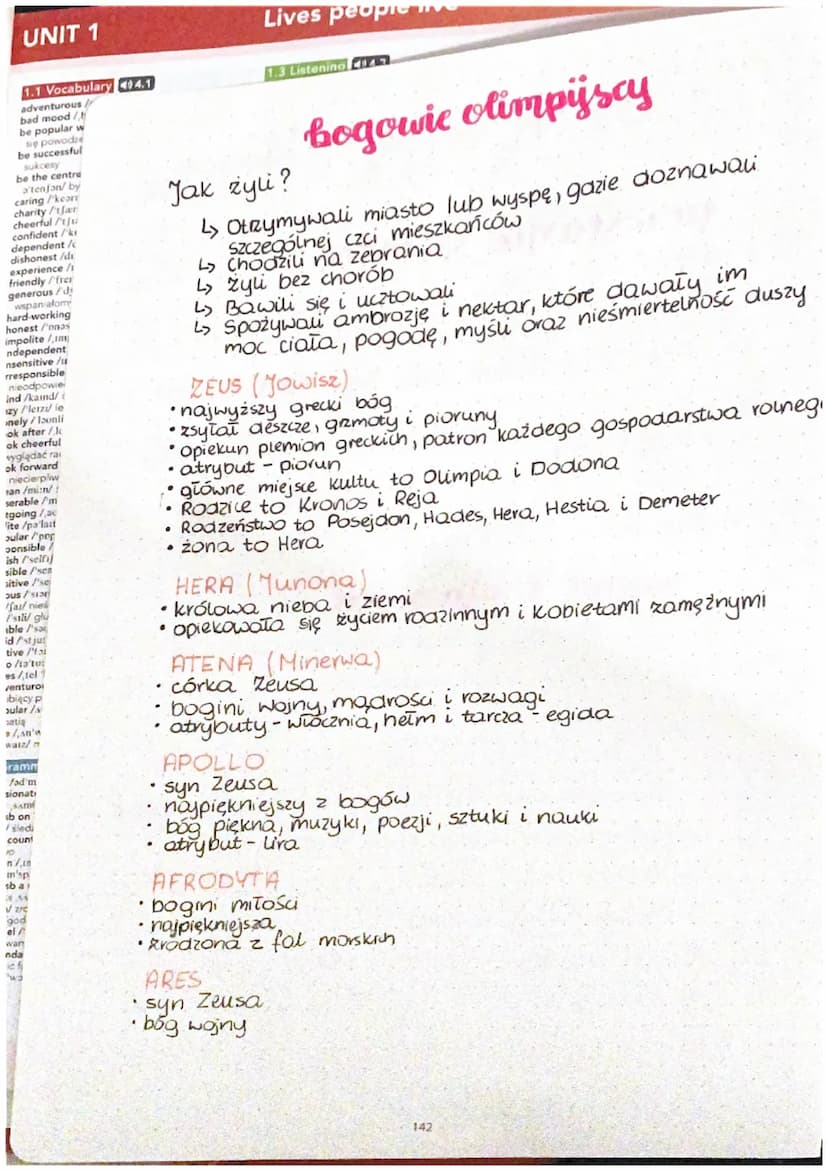 UNIT 1
Lives people live
1.1 Vocabulary 4.1
1.3 Listening
adventurous
bad mood
be popular w
się powodze
be successful
sukcesy
be the centre
caring
charity
cheerful
confident
dependent
dishonest
experience
friendly
generous
wspaniałom
hard-working
honest
impolite
ndependent
nsensitive
rresponsible
nieodpowie
ind /kaind/
zy /leizi/ le
nely
ok after
ok cheerful
wyglądać ra
ok forward
niecierpliw
bogowie olimpijscy
Jak żyli?
↳ Otrzymywali miasto lub wyspę, gdzie doznawali
szczególnej czci mieszkańców
↳ Chodzili na zebrania
↳ żyli bez chorób
↳ Bawili się i ucztowali
↳ Spożywali ambrozję i nektar, które dawały im
moc ciała, pogodę, myśli oraz nieśmiertelność duszy
ZEUS (Jowisz)
• najwyższy grecki bóg
• zsyłał deszcze, grzmoty i pioruny
• opiekun plemion greckich, patron każdego gospodarstwa rolneg
• atrybut - piorun
• główne miejsce kultu to Olimpia i Dodona
• Rodzice to Kronos i Reja
• Rodzeństwo to Posejdon, Hades, Hera, Hestia i Demeter
• żona to Hera
HERA (Junona)
• królowa nieba i ziemi
• opiekowała się życiem rodzinnym i kobietami zamężnymi
ATENA (Minerwa)
• córka Zeusa
• bogini wojny, mądrości i rozwagi
• atrybuty - włócznia, hełm i tarcza - egida
APOLLO
• syn Zeusa
• najpiękniejszy z bogów
• bóg piękna, muzyki, poezji, sztuki i nauki
• atrybut - lira
AFRODYTA
• bogini miłości
• najpiękniejsza
• zrodzona z fal morskich
ARES
• syn Zeusa
• bóg wojny
142